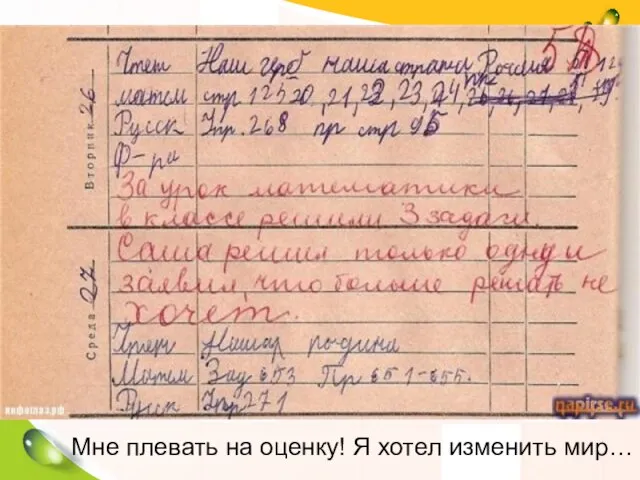 Вторник 26
Чтен Наш герб наша страна Россия 5
матем стр 125 20, 21, 22, 23, 24,
Русск Упр. 268 пр стр 95
Ф-ра
За урок математики
в классе решили 3 задачи.
Среда 27
Саша решил только одну и
заявил, что больше решать не
хочет.
Чтен Наша родина
Матем Зад 653 Пр 651-655.
Русск Упр 271
инфоглаз.рф
napirse.ru
Мне плевать на оценку! Я хотел изменить мир…